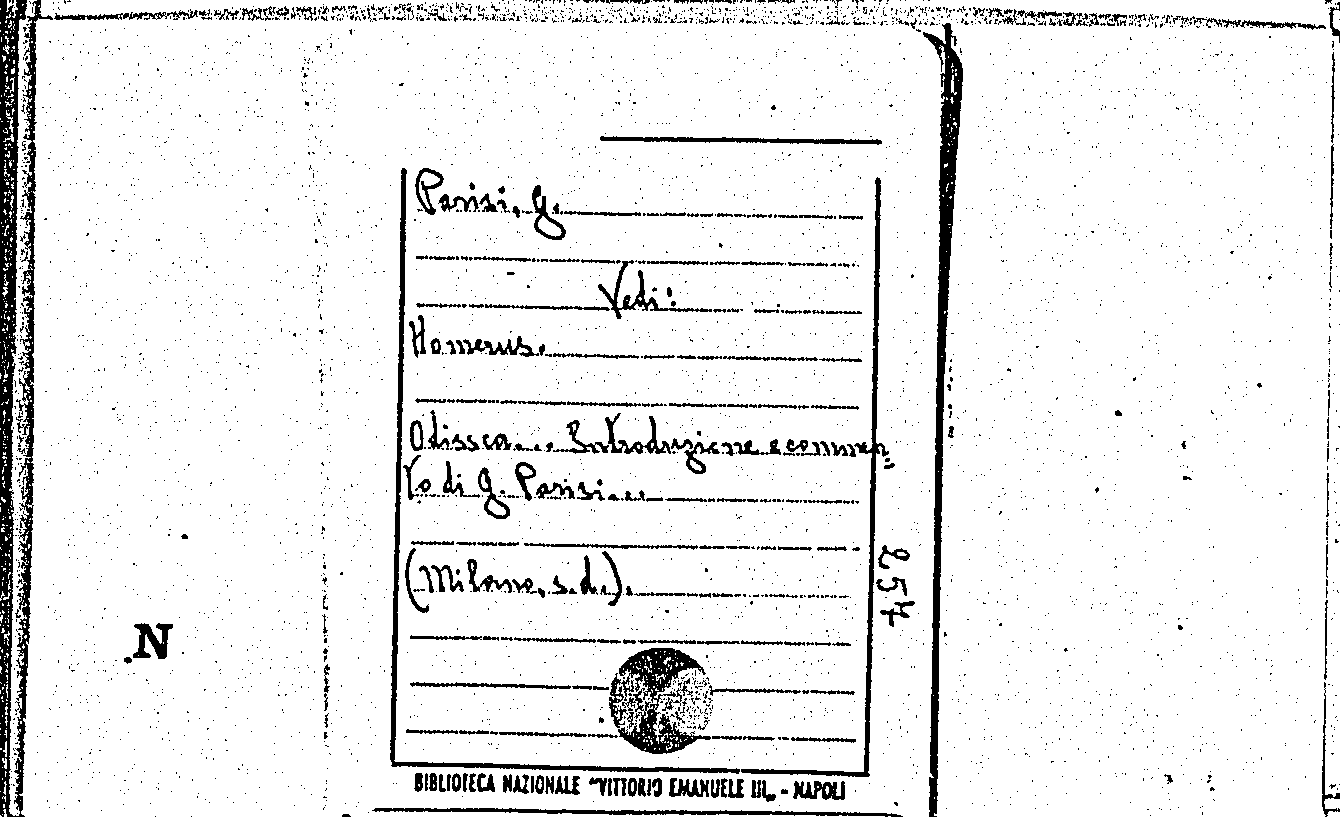 Parisi, G.
Vedi:
Homerus.
Odissea... Introduzione e commen=
to di G. Parisi...
(Milano, s.d.).
254
N
BIBLIOTECA NAZIONALE "VITTORIO EMANUELE III„ - NAPOLI